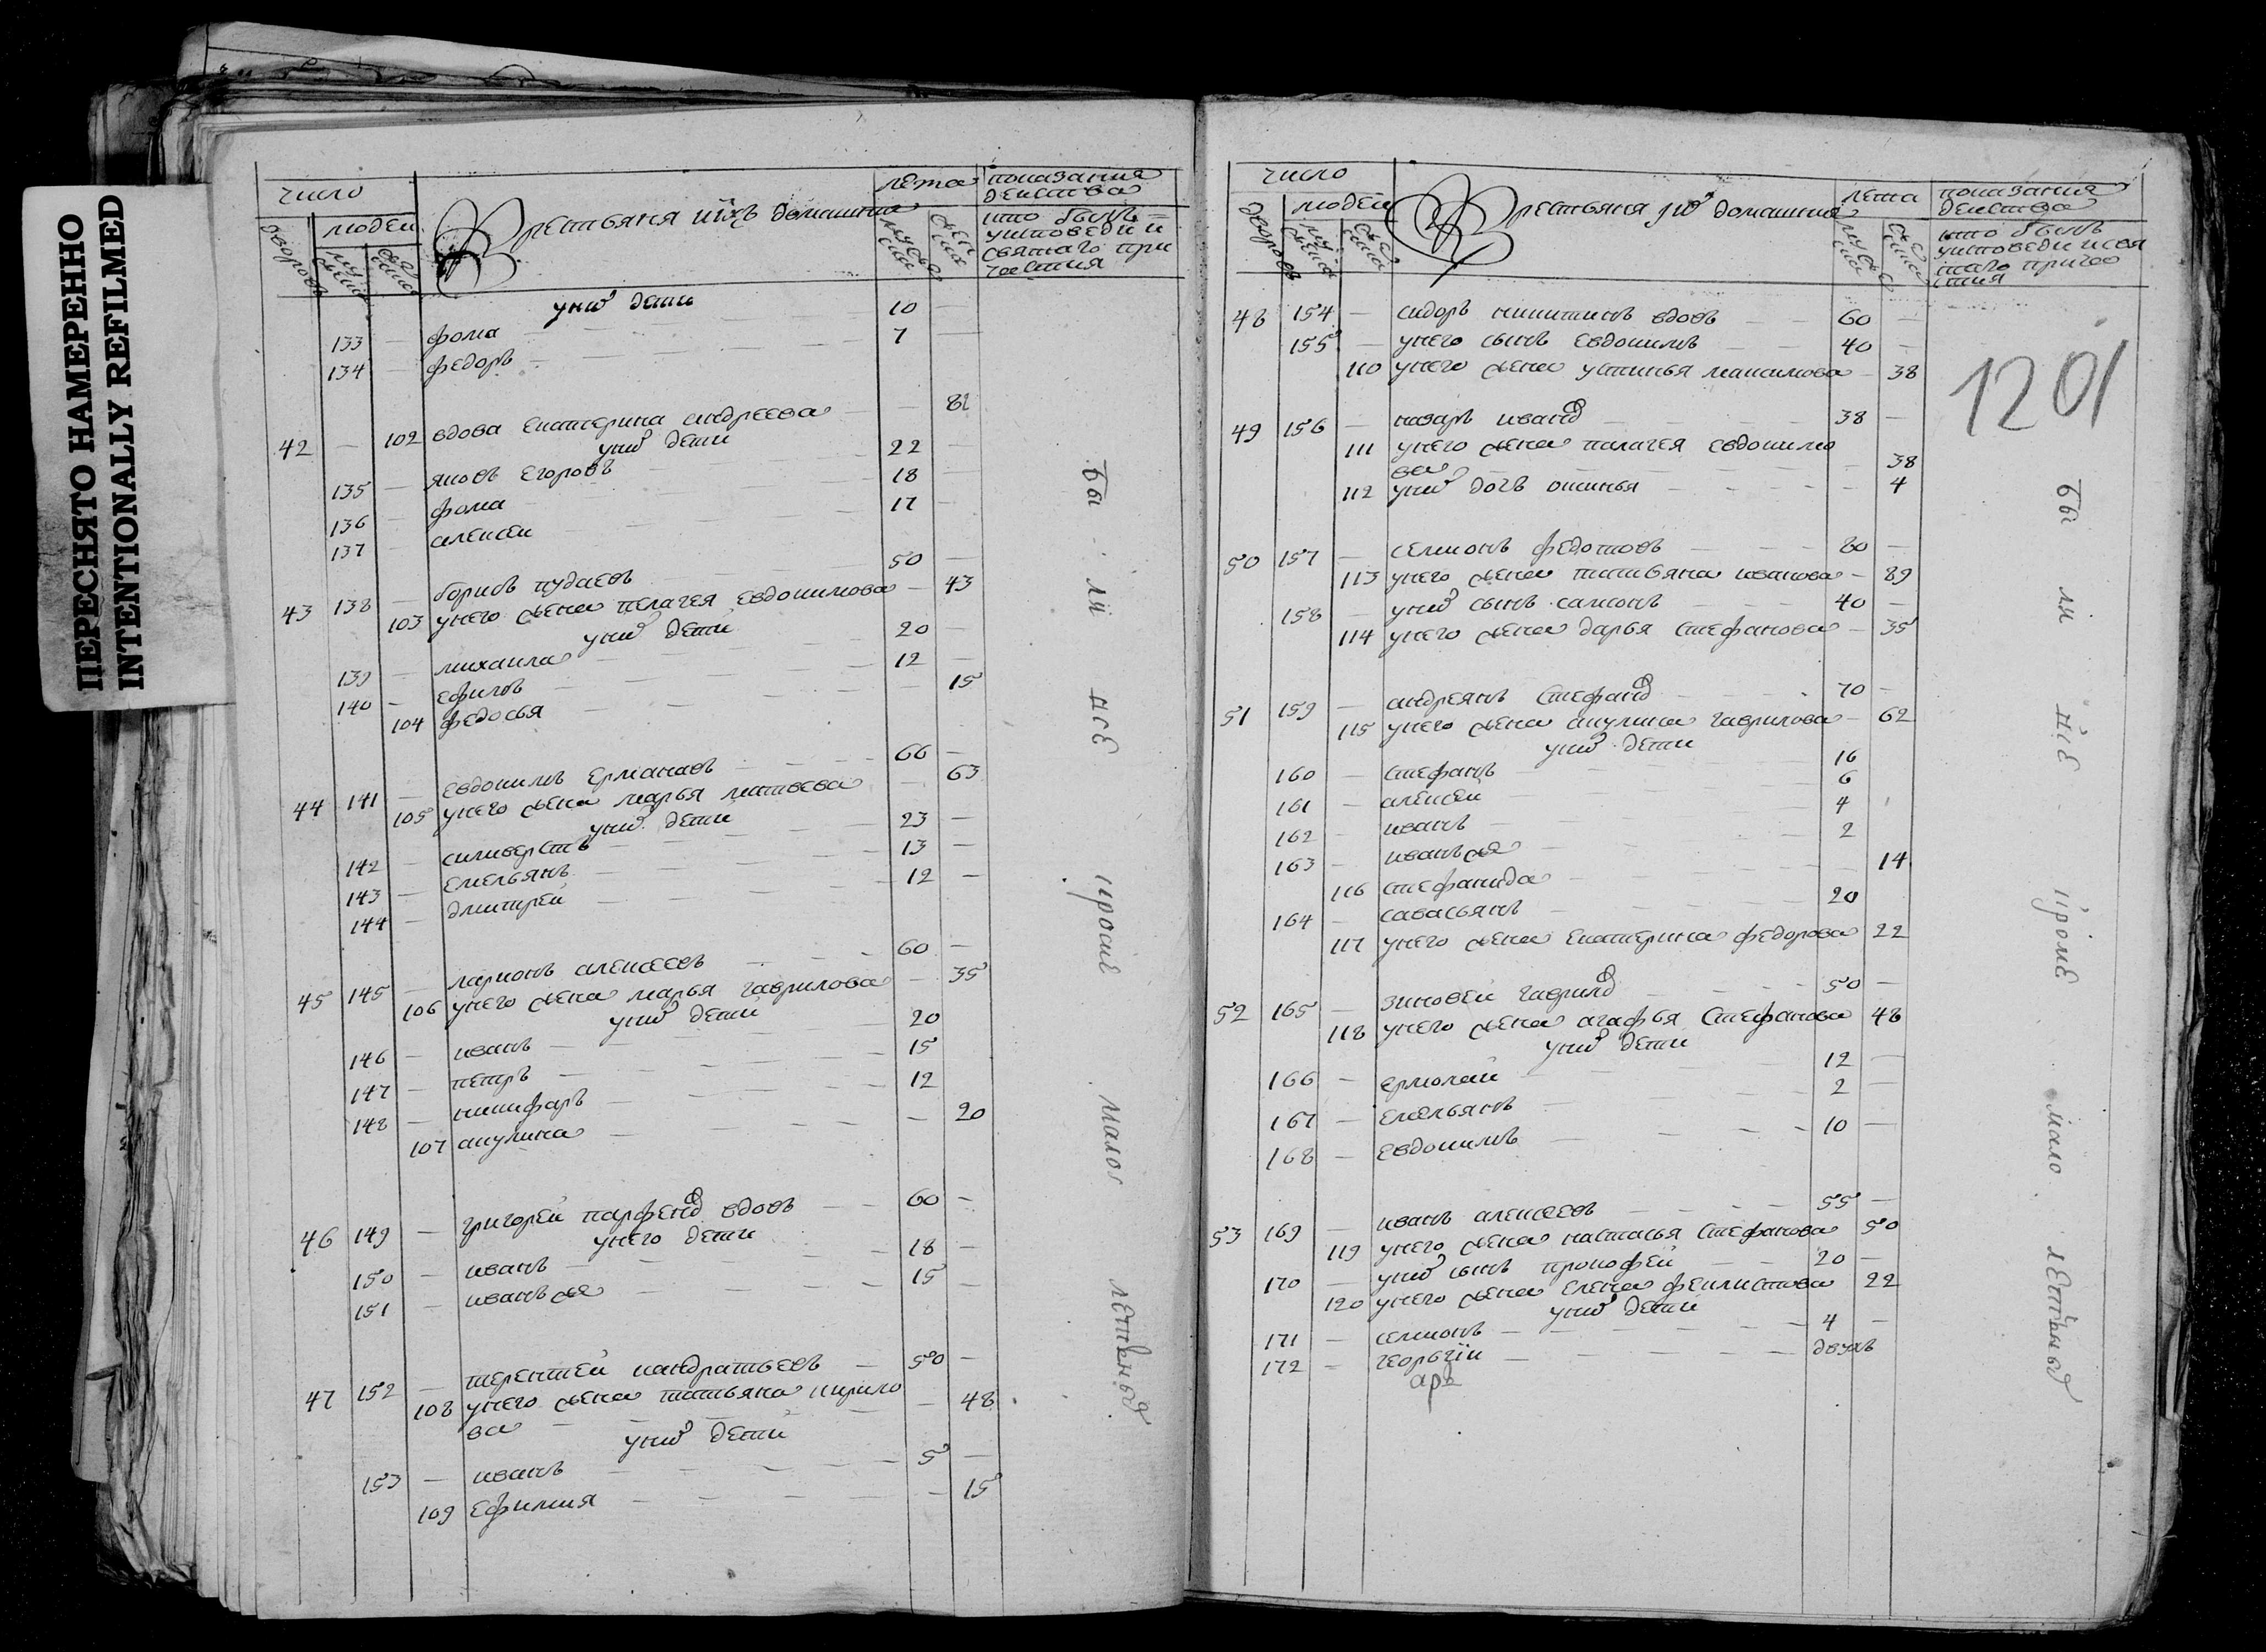 ПЕРЕСНЯТО НАМЕРЕННО
INTENTIONALLY REFILMED
число
людей
дворовъ
Крестьяня ихъ домашния
лета
показания действа
кто былъ
у исповеди и
святаго при
частия
у них дети
133 — фома — 10 —
134 — федоръ — 7 —
42 — 102 вдова Екатерина андреева — 82
у них дети
135 — яковъ Егоровъ — 22 —
136 — фома — 18 —
137 — алексеи — 17 —
43 138 — борисъ пудаевъ — 50 —
103 у него жена пелагея Евдокимова — 43
у них дети
139 — михаила — 20 —
140 — Ефимъ — 12 —
104 федосья — 15
44 141 — Евдокимъ Ермакавъ — 66 —
105 у него жена марья матвева — 63
у них дети
142 — силиверстъ — 23 —
143 — Емельянъ — 13 —
144 — дмитрей — 12 —
45 145 — ларионъ алексеевъ — 60 —
106 у него жена марья гаврилова — 35
у них дети
146 — иванъ — 20
147 — петръ — 15
148 — никифаръ — 12
107 акулина — 20
46 149 — григорей парфенов вдовъ — 60 —
у него дети
150 — иванъ — 18 —
151 — иванъ же — 15 —
47 152 — терентей кандратьевъ — 50 —
108 у него жена татьяна кирило
ва — 48
у них дети
153 — иванъ — 5 —
109 Ефимия — 15
Бы ли все кроме малолетных
число
людей
дворовъ
Крестьяня и их домашния
лета
показания действа
кто былъ
у исповеди и свя
таго причас
тия
1201
48 154 — сидоръ никитинъ вдовъ — 60 —
155 — у него сынъ Евдокимъ — 40 —
110 у него жена устинья максимова — 38
49 156 — назаръ иванов — 38 —
111 у него жена палагея Евдокимо
ва — 38
112 у них дочь аксинья — 4
50 157 — семионъ федотовъ — 80 —
113 у него жена татьяна иванова — 89
158 — у них сынъ самсонъ — 40 —
114 у него жена дарья Стефанова — 35
51 159 — андреянъ Стефанов — 70 —
115 у него жена акулина гаврилова — 62
у них дети
160 — стефанъ — 16
161 — алексеи — 6
162 — иванъ — 4
163 — иванъ же — 2
116 стефанида — 14
164 — савасьянъ — 20
117 у него жена Екатерина федорова 22
52 165 — зиновеи гаврилов — 50 —
118 у него жена агафья Стефанова 48
у них дети
166 — ермолаи — 12 —
167 — Емельянъ — 2 —
168 — Евдокимъ — 10 —
53 169 — иванъ алексеевъ — 55 —
119 у него жена настасья Стефанова 50
170 — у них сынъ прокофеи — 20 —
120 у него жена Елена феилистова 22
у них дети
171 — семионъ — 4 —
172 — георьгiи — двухъ
Бы ли все кроме малолетных